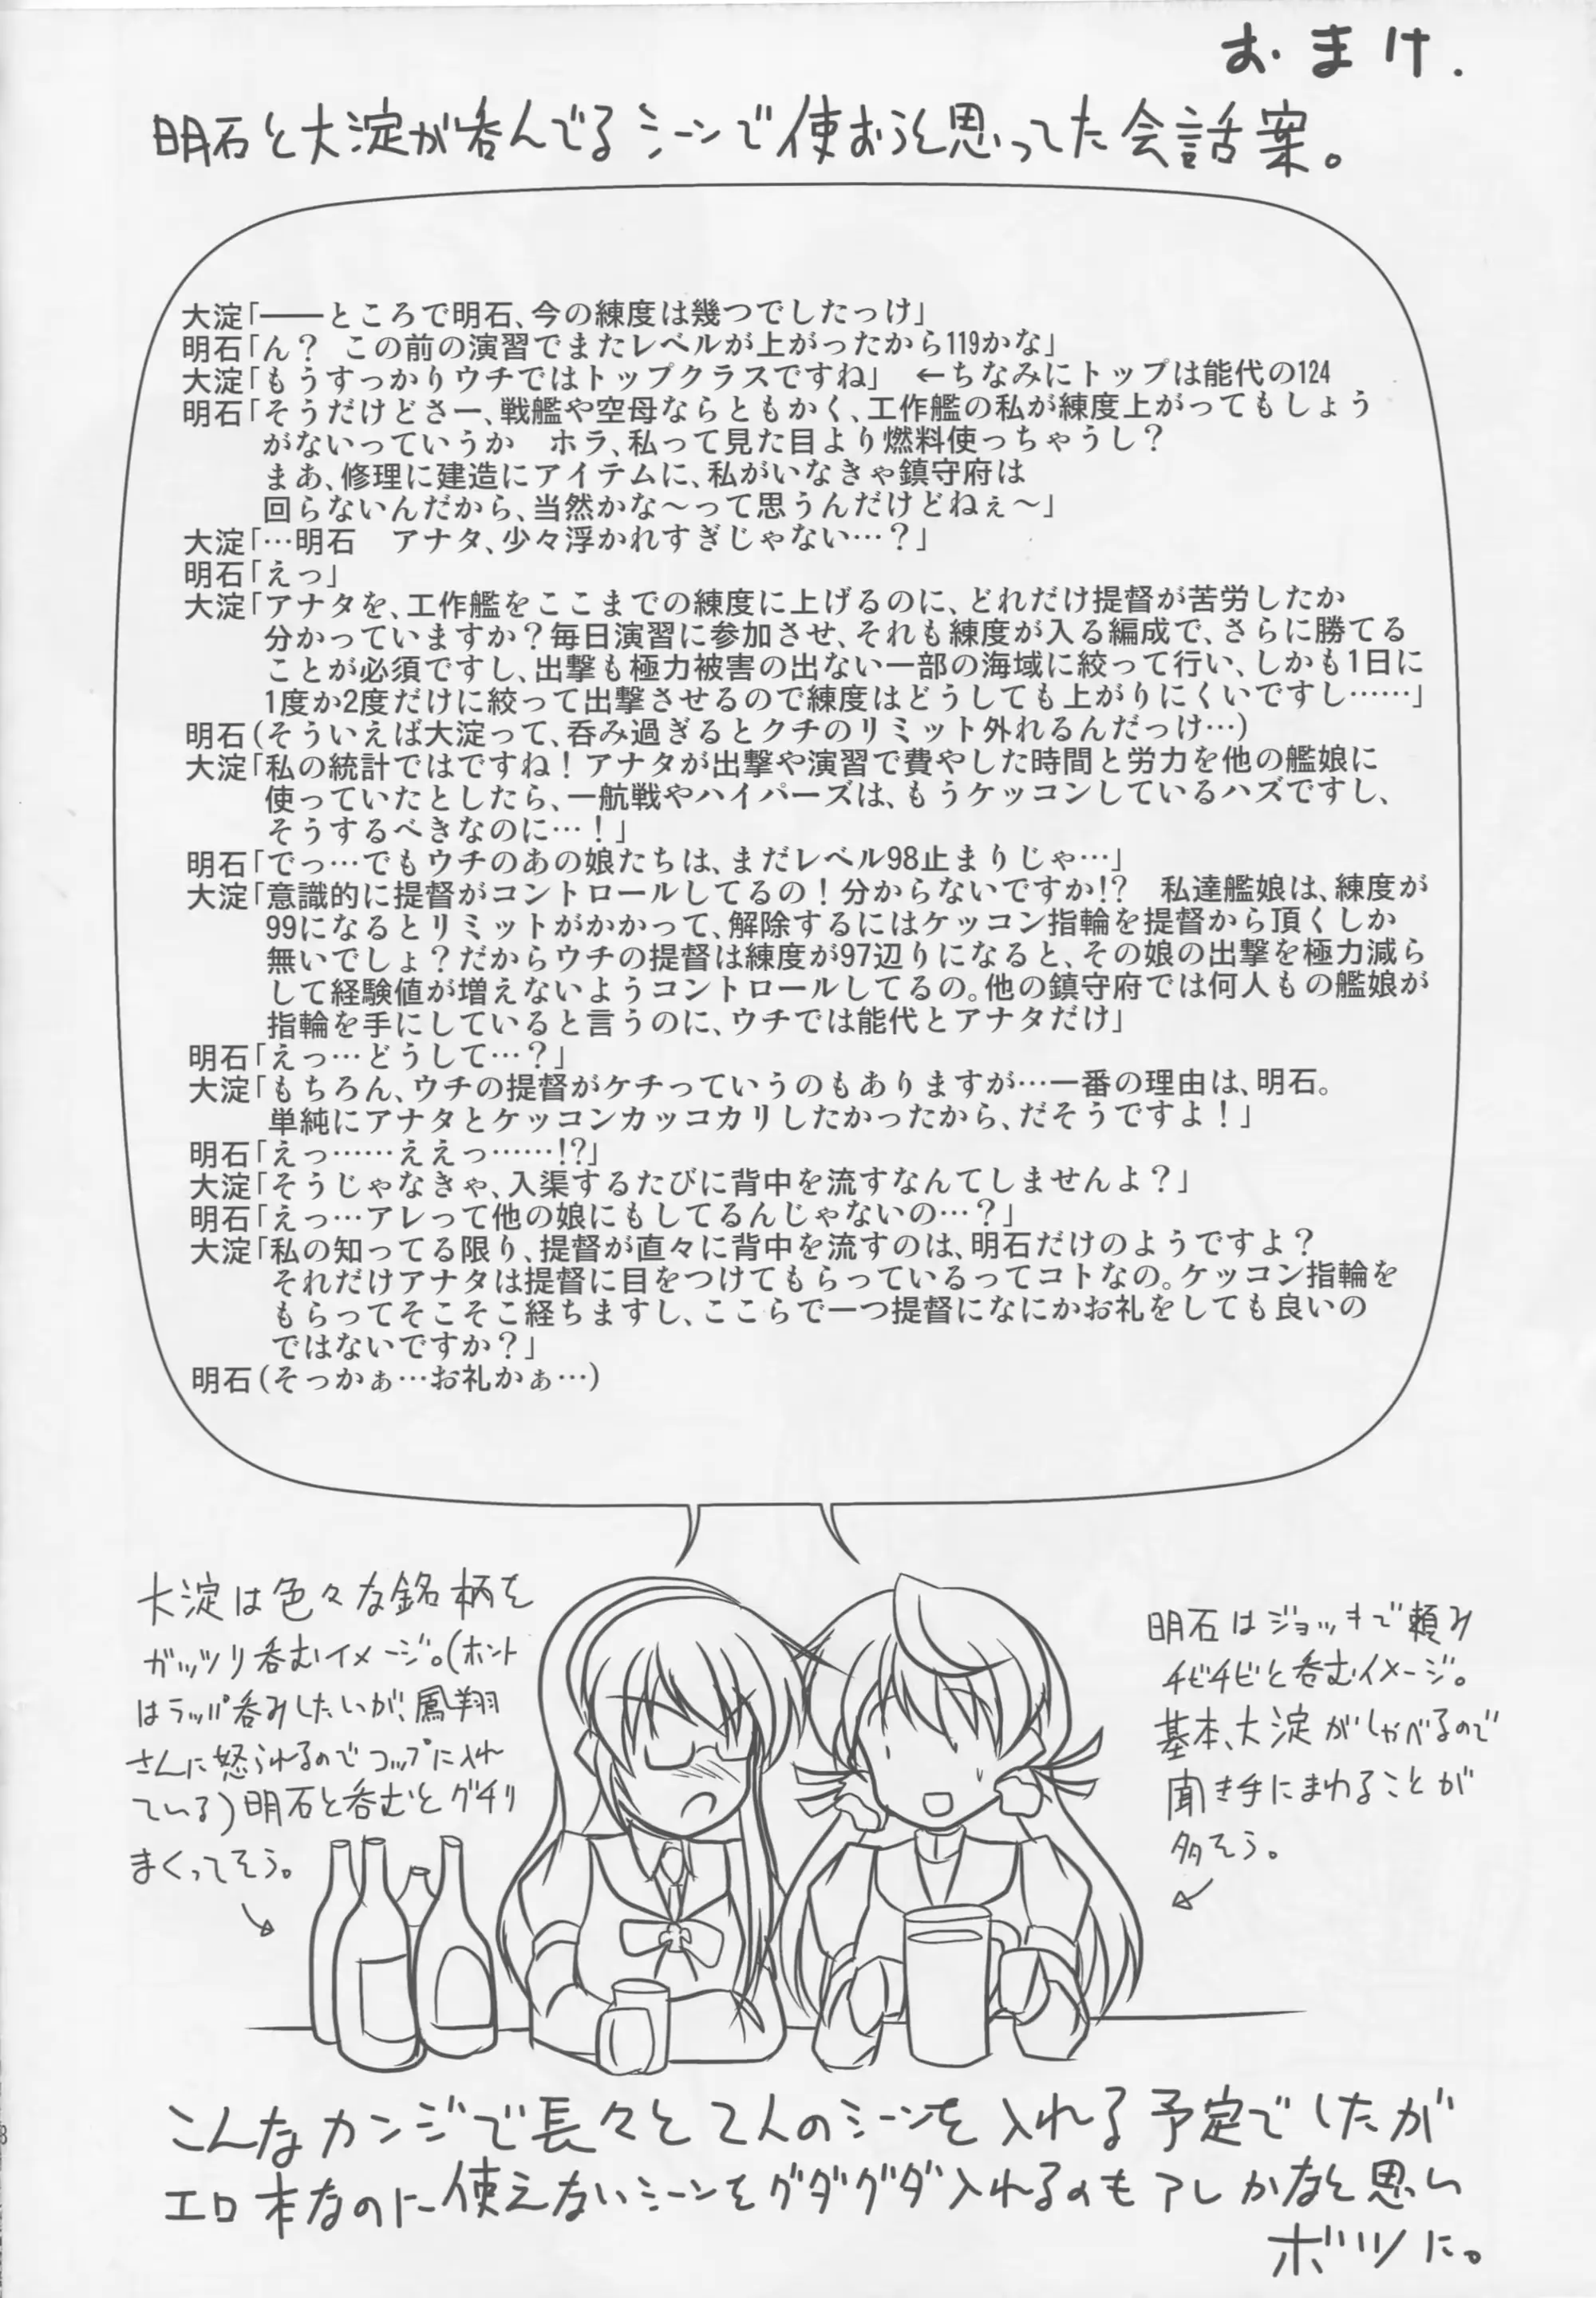 おまけ.
明石と大淀が呑んでるシーンで使おうと思ってた会話案。
大淀「――ところで明石、今の練度は幾つでしたっけ」
明石「ん？　この前の演習でまたレベルが上がったから119かな」
大淀「もうすっかりウチではトップクラスですね」　←ちなみにトップは能代の124
明石「そうだけどさー、戦艦や空母ならともかく、工作艦の私が練度上がってもしょう
がないっていうか　ホラ、私って見た目より燃料使っちゃうし？
まあ、修理に建造にアイテムに、私がいなきゃ鎮守府は
回らないんだから、当然かな～って思うんだけどねぇ～」
大淀「…明石　アナタ、少々浮かれすぎじゃない…？」
明石「えっ」
大淀「アナタを、工作艦をここまでの練度に上げるのに、どれだけ提督が苦労したか
分かっていますか？毎日演習に参加させ、それも練度が入る編成で、さらに勝てる
ことが必須ですし、出撃も極力被害の出ない一部の海域に絞って行い、しかも1日に
1度か2度だけに絞って出撃させるので練度はどうしても上がりにくいですし……」
明石(そういえば大淀って、呑み過ぎるとクチのリミット外れるんだっけ…)
大淀「私の統計ではですね！アナタが出撃や演習で費やした時間と労力を他の艦娘に
使っていたとしたら、一航戦やハイパーズは、もうケッコンしているハズですし、
そうするべきなのに…！」
明石「でっ…でもウチのあの娘たちは、まだレベル98止まりじゃ…」
大淀「意識的に提督がコントロールしてるの！分からないですか!?　私達艦娘は、練度が
99になるとリミットがかかって、解除するにはケッコン指輪を提督から頂くしか
無いでしょ？だからウチの提督は練度が97辺りになると、その娘の出撃を極力減ら
して経験値が増えないようコントロールしてるの。他の鎮守府では何人もの艦娘が
指輪を手にしていると言うのに、ウチでは能代とアナタだけ」
明石「えっ…どうして…？」
大淀「もちろん、ウチの提督がケチっていうのもありますが…一番の理由は、明石。
単純にアナタとケッコンカッコカリしたかったから、だそうですよ！」
明石「えっ……ええっ……!?」
大淀「そうじゃなきゃ、入渠するたびに背中を流すなんてしませんよ？」
明石「えっ…アレって他の娘にもしてるんじゃないの…？」
大淀「私の知ってる限り、提督が直々に背中を流すのは、明石だけのようですよ？
それだけアナタは提督に目をつけてもらっているってコトなの。ケッコン指輪を
もらってそこそこ経ちますし、ここらで一つ提督になにかお礼をしても良いの
ではないですか？」
明石(そっかぁ…お礼かぁ…)
大淀は色々な銘柄を
ガッツリ呑むイメージ。(ホント
はラッパ呑みしたいが、鳳翔
さんに怒られるのでコップに入れ
ている)明石と呑むとグチり
まくってそう。
明石はジョッキで頼み
チビチビと呑むイメージ。
基本、大淀がしゃべるので
聞き手にまわることが
多そう。
こんなカンジで長々と2人のシーンを入れる予定でしたが
エロ本なのに使えないシーンをグダグダ入れるのもアレかなと思い
ボツに。